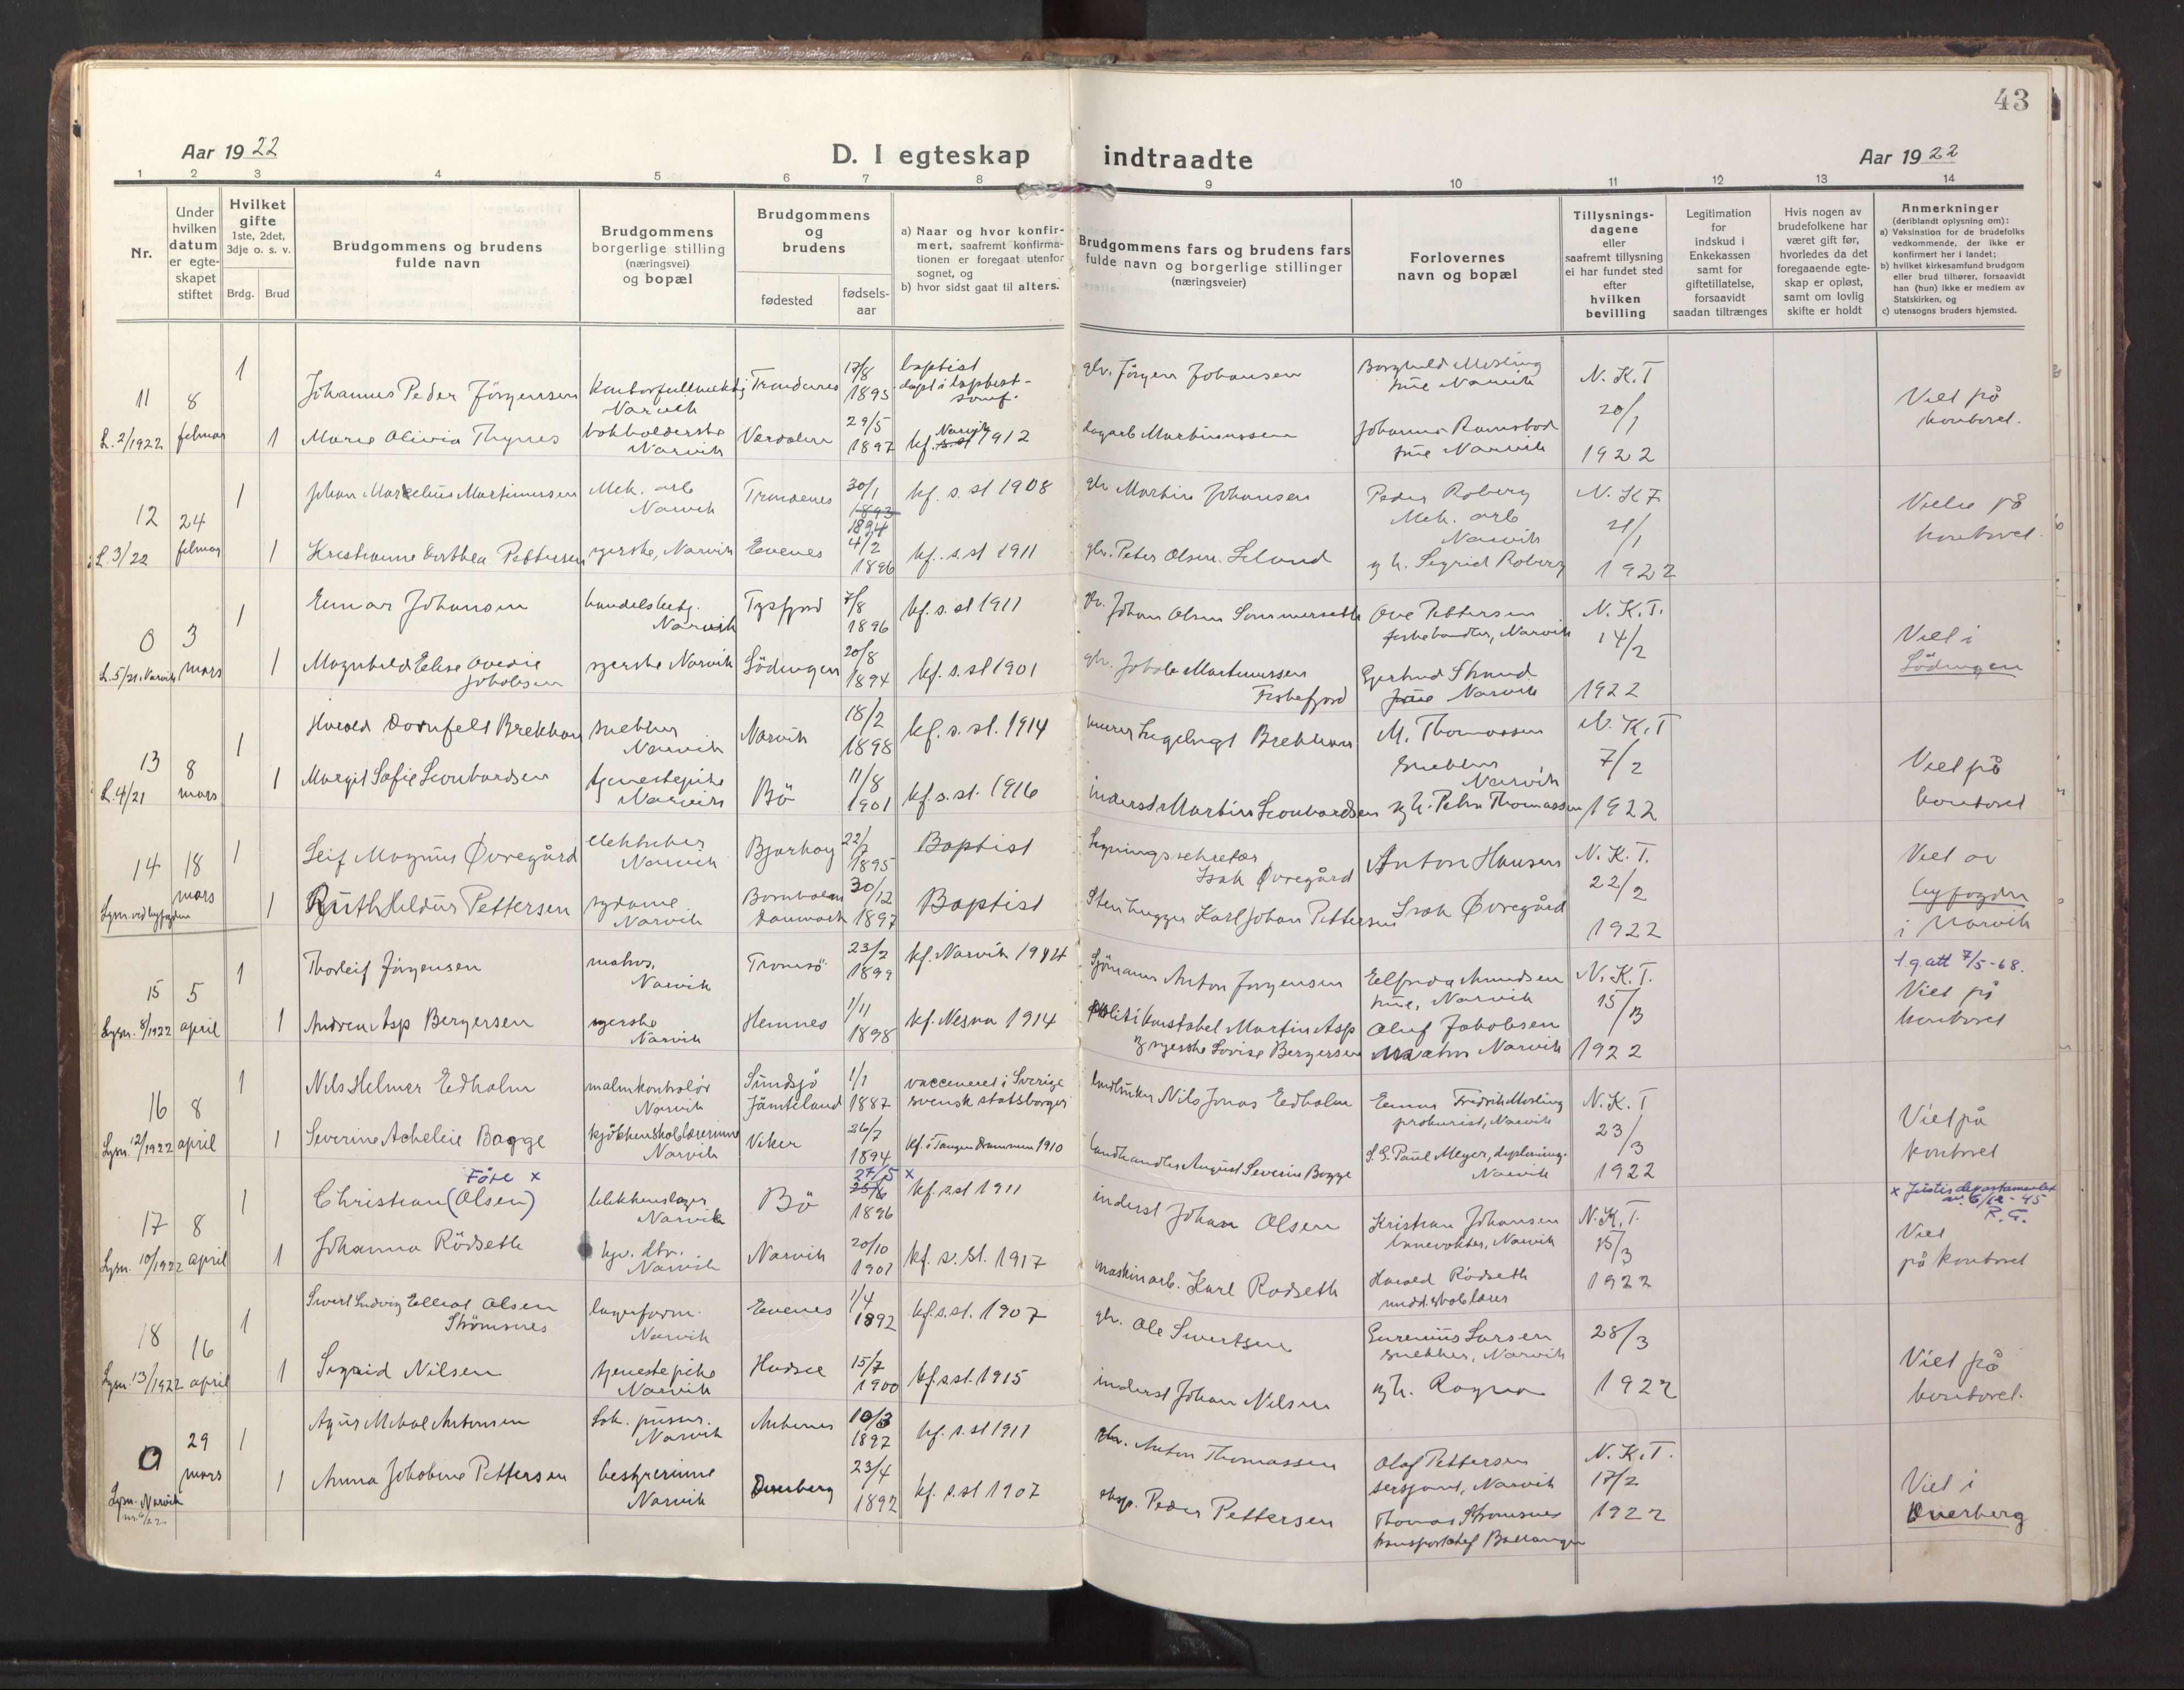 43
Aar 1922
D. I egteskap indtraadte
Aar 1922
1 2 3 4 5 6 7 8 9 10 11 12 13 14
Nr.
Under hvilken datum er egte-skapet stiftet
Hvilket gifte
1ste, 2det, 3dje o. s. v.
Brdg. Brud
Brudgommens og brudens
fulde navn
Brudgommens
borgerlige stilling
(næringsvei)
og bopæl
Brudgommens
og
brudens
fødested
fødsels-
aar
a) Naar og hvor konfir-
mert, saafremt konfirma-
tionen er foregaat utenfor
sognet, og
b) hvor sidst gaat til alters.
Brudgommens fars og brudens fars
fulde navn og borgerlige stillinger
(næringsveier)
Forlovernes
navn og bopæl
Tillysnings-
dagene
eller
saafremt tillysning
ei har fundet sted
efter
hvilken
bevilling
Legitimation
for
indskud i
Enkekassen
samt for
giftetillatelse,
forsaavidt
saadan tiltrænges
Hvis nogen av
brudefolkene har
været gift før,
hvorledes da det
foregaaende egte-
skap er opløst,
samt om lovlig
skifte er holdt
Anmerkninger
(deriblandt oplysning om):
a) Vaksination for de brudefolks
vedkommende, der ikke er
konfirmert her i landet;
b) hvilket kirkesamfund brudgom
eller brud tilhører, forsaavidt
han (hun) ikke er medlem av
Statskirken, og
c) utensogns bruders hjemsted.
11 8 februar
L. 2/1922
1 Johannes Peder Jörgensen
Narvik
Trondenes
1895
baptist
gbr. Jörgen Johansen
Narvik
N. K. T
20/1
1922
Viet på
kontoret.
1 Marie Olivia Thynes
bokholderske
Narvik
Verdalen
29/5
1897
kf. Narvik 1912
Narvik
12 24 februar
L. 3/22
1 Johan Markelius Martinussen
Mek. arb
Narvik
Trondenes
30/1
1893
1894
kf. s. st 1908
gbr Martin Johansen
Peder Roberg
Mek. arb
Narvik
21/1
1922
1 Kristianne Dorthea Pettersen
syerske, Narvik
Evenes
4/2
1896
kf. s. st 1911
gbr. Peter Olsen
og h. Sigrid Roberg
0 3 mars
L. 5/21 Narvik
1 Einar Johansen
Narvik
Tysfjord
7/8
1896
kf. s. st 1911
Johan Olsen Sommerseth
Ove Pettersen
Narvik
N. K. T.
14/2
1922
Viet i
Lödingen
1 Magnhild Elise Ovedie
Jakobsen
syerske Narvik
Lödingen
20/8
1894
kf. s. st 1901
gbr. Jakob Martinussen
Fiskefjord
Gjertrud Strand
Narvik
13 8 mars
L. 4/21
1 Harald Dornfelt Brekhan
snekker
Narvik
Narvik
18/2
1898
kf. s. st. 1914
murer Ingebrigt Brekhan
M. Thomassen
snekker
Narvik
N. K. T
7/2
1922
Viet på
kontoret
1 Margit Sofie Leonhardsen
tjenestepike
Narvik
Bö
11/8
1901
kf. s. st. 1916
inderst Martin Leonhardsen
og h. Petra Thomassen
14 18 mars
Lysn. ved byfogden
1 Leif Magnus Øvregård
elektriker
Narvik
22/7
1895
Baptist
Isak Øvregård
Anton Hansen
N. K. T.
22/2
1922
Viet av
byfogden
i Narvik
1 Ruth Heldur Pettersen
sydame
Narvik
Bornholm
Danmark
30/12
1897
Baptist
Stenhugger Karl Johan Pettersen
Isak Øvregård
15 5 april
Lysn. 8/1922
1 Thorleif Jörgensen
matros,
Narvik
Tromsö
23/2
1899
kf. Narvik 1914
Sjömann Anton Jörgensen
Elfrida Amundsen
frue, Narvik
N. K. T.
15/3
1922
l. q. att 7/5-68.
Viet på
kontoret
1 Andrea Asp Bergersen
syerske
Narvik
Hemnes
1/11
1898
kf. Nesna 1914
Politikonstabel Martin Asp
og syerske Lovise Bergersen
Oluf Jakobsen
Narvik
16 8 april
Lysn. 12/1922
1 Nils Helmer Edholm
malmkontrolör
Narvik
Sundsjö
Jämteland
1/1
1887
vaccineret i Sverige
svensk statsborger
landbruker Nils Jonas Edholm
Einar Fredrik Mosling
prokurist, Narvik
N. K. T
23/3
1922
Viet på
kontoret
1 Severine Bagge
kjökkenskolelærerinne
Narvik
Viker
26/7
1894
kf. i Tangen Drammen 1910
Landhandler August Severin Bagge
S. G. Paul Meyer,
Narvik
17 8 april
Lysn. 10/1922
Före x
1 Christian (Olsen)
blikkenslager
Narvik
Bö
27/5 x
25/6
1896
kf. s. st 1911
inderst Johan Olsen
Kristian Johansen
Narvik
N. K. T.
15/3
1922
x Justisdepartementet
R. G.
Viet
på kontoret
1 Johanna Rödseth
Narvik
Narvik
20/10
1901
kf. s. st. 1917
maskinarb. Karl Rødseth
Harald Rödseth
middelskolelærer
18 16 april
Lysn. 13/1922
1 Sivert Ludvig Elliot Olsen
Strömsnes
lagerform.
Narvik
Evenes
1/4
1892
kf. s. st. 1907
gbr. Ole Sivertsen
Gurenius Larsen
snekker, Narvik
28/3
1922
Viet på
kontoret.
1 Sigrid Nilsen
tjenestepike
Narvik
Hadsel
15/7
1900
kf. s. st. 1915
inderst Johan Nilsen
og h. Ragna
0 29 mars
Lysn. Narvik
1 Antonsen
Narvik
Ankenes
10/3
1897
kf. s. st 1911
gbr. Anton Thomassen
Olaf Pettersen
sersjant, Narvik
N. K. T.
17/2
1922
Viet i
Dverberg
1 Anna Jakobine Pettersen
bestyrerinne
Narvik
Dverberg
23/4
1892
kf. s. st 1907
Peder Pettersen
Thomas Strömsnes
Ballangen